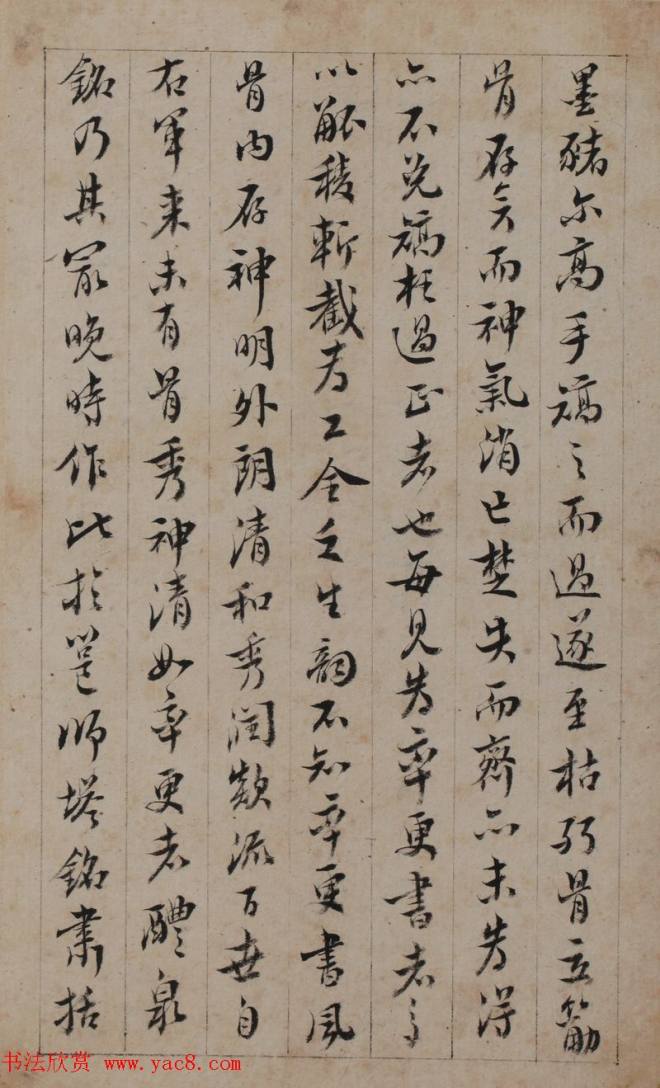 墨豬尔高手矯之而過遂至枯弱骨立筋
骨存矣而神氣消亡楚失而齊亦未為得
亦不免矯枉過正者也每見為率更書者
以觚稜斬截為工全乏生韻不知率更書風
骨内存神明外朗清和秀潤韻流百世自
右軍来未有骨秀神清如率更者醴泉
銘乃其最晚時作比於邕師塔銘肅括
书法欣赏 www.yac8.com